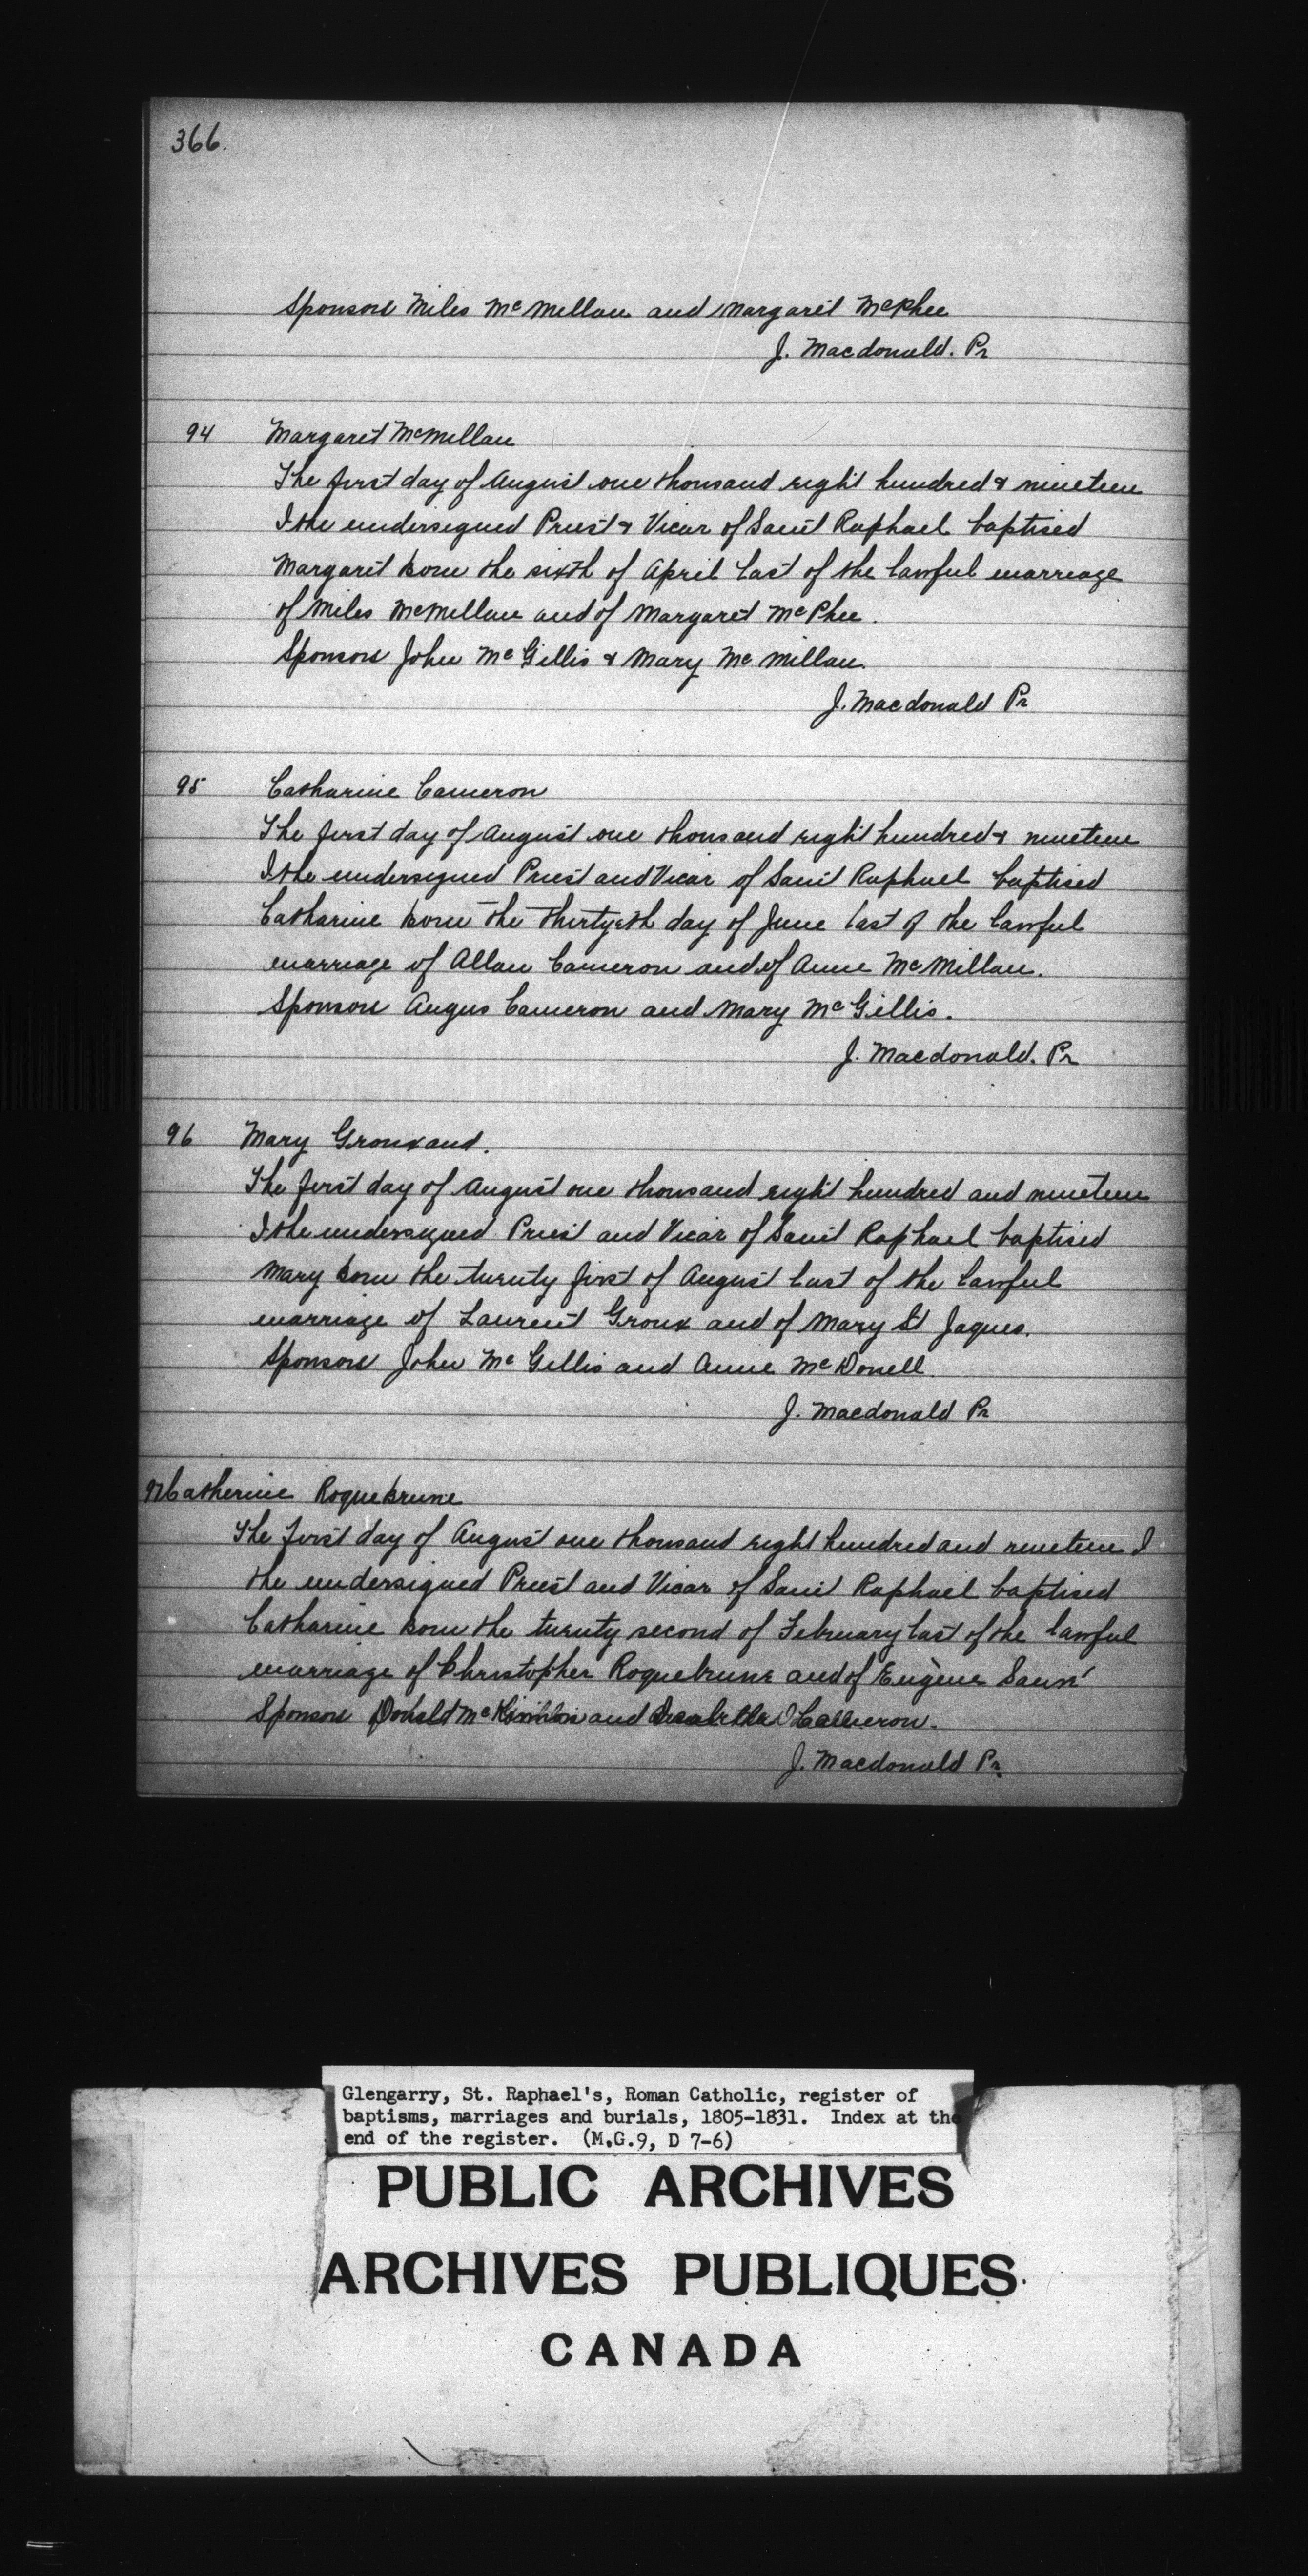 366.
Sponsors Miles McMillan and Margaret McPhee
J. Macdonald. Pr
94 Margaret McMillan
The first day of August one thousand eight hundred & nineteen
I the undersigned Priest & Vicar of Saint Raphael baptised
Margaret born the sixth of April last of the lawful marriage
of Miles McMillan and of Margaret McPhee.
Sponsors John McGillis & Mary McMillan.
J. Macdonald Pr
95 Catharine Cameron
The first day of August one thousand eight hundred & nineteen
I the undersigned Priest and Vicar of Saint Raphael baptised
Catharine born the thirtyeth day of June last of the lawful
marriage of Allan Cameron and of Anne McMillan.
Sponsors Angus Cameron and Mary McGillis.
J. Macdonald. Pr
96 Mary Grouxand.
The first day of August one thousand eight hundred and nineteen
I the undersigned Priest and Vicar of Saint Raphael baptised
Mary born the twenty first of August last of the lawful
marriage of Laurent Groux and of Mary St Jaques.
Sponsors John McGillis and Anne McDonell.
J. Macdonald Pr
97 Catherine Roquebrune
The first day of August one thousand eight hundred and nineteen I
the undersigned Priest and Vicar of Saint Raphael baptised
Catharine born the twenty second of February last of the lawful
marriage of Christopher Roquebrune and of Eugène
Sponsors Donald and
J. Macdonald Pr.
Glengarry, St. Raphael's, Roman Catholic, register of
baptisms, marriages and burials, 1805-1831. Index at the
end of the register. (M.G.9, D 7-6)
PUBLIC ARCHIVES
ARCHIVES PUBLIQUES
CANADA